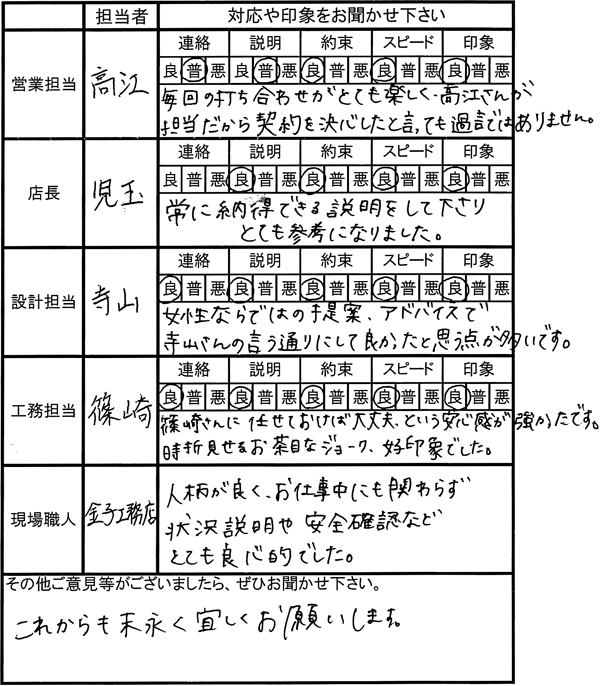 担当者 対応や印象をお聞かせ下さい
営業担当 高江
連絡 説明 約束 スピード 印象
良 普 悪 良 普 悪 良 普 悪 良 普 悪 良 普 悪
毎回の打ち合わせがとても楽しく・高江さんが
担当だから契約を決心したと言っても過言ではありません。
店長 児玉
連絡 説明 約束 スピード 印象
良 普 悪 良 普 悪 良 普 悪 良 普 悪 良 普 悪
常に納得できる説明をして下さり
とても参考になりました。
設計担当 寺山
連絡 説明 約束 スピード 印象
良 普 悪 良 普 悪 良 普 悪 良 普 悪 良 普 悪
女性ならではの提案、アドバイスで
寺山さんの言う通りにして良かったと思う点が多いです。
工務担当 篠崎
連絡 説明 約束 スピード 印象
良 普 悪 良 普 悪 良 普 悪 良 普 悪 良 普 悪
篠崎さんに任せておけば大丈夫、という安心感が強かったです。
時折見せるお茶目なジョーク、好印象でした。
現場職人 金子工務店
人柄が良く、お仕事中にも関わらず
状況説明や安全確認など
とても良心的でした。
その他ご意見等がございましたら、ぜひお聞かせ下さい。
これからも末永く宜しくお願いします。